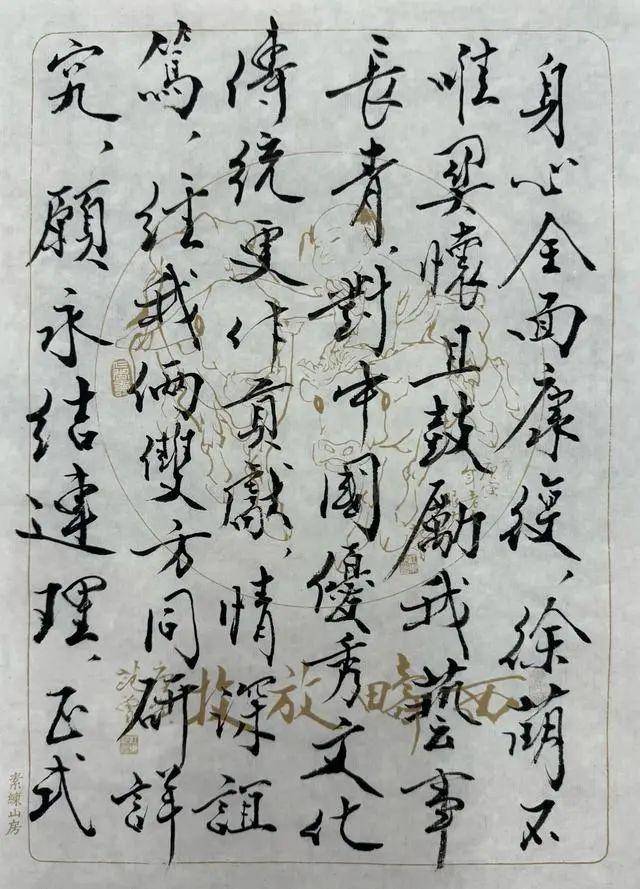 身心全面康復、徐萌不
唯異懷且鼓勵我藝事
長青、對中國優秀文化
傳統更作貢獻、情深誼
篤、經我倆雙方同研詳
究、願永結連理、正式
西疇放牧
素練山房